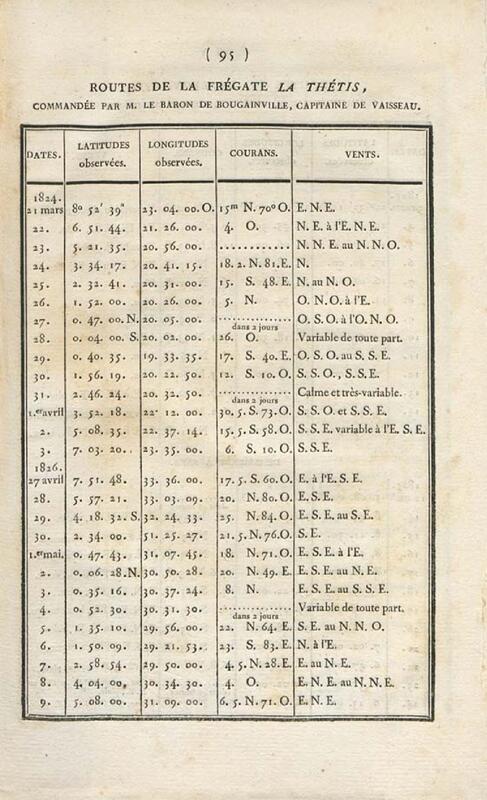 ( 95 )
ROUTES DE LA FRÉGATE LA THÉTIS,
COMMANDÉE PAR M. LE BARON DE BOUGAINVILLE, CAPITAINE DE VAISSEAU.
DATES. LATITUDES observées. LONGITUDES observées. COURANS. VENTS.
1824.
21 mars 8° 52′ 39″ 23. 04. 00. O. 15m N. 70° O. E. N. E.
22. 6. 51. 44. 21. 26. 00. 4. O. N. E. à l'E. N. E.
23. 5. 21. 35. 20. 56. 00. ............ N. N. E. au N. N. O.
24. 3. 34. 17. 20. 41. 15. 18. 2. N. 81. E. N.
25. 2. 32. 41. 20. 31. 00. 15. S. 48. E. N. au N. O.
26. 1. 52. 00. 20. 26. 00. 5. N. O. N. O. à l'E.
27. 0. 47. 00. N. 20. 05. 00. ............ O. S. O. à l'O. N. O.
dans 2 jours
28. 0. 04. 00. S. 20. 02. 00. 26. O. Variable de toute part.
29. 0. 40. 35. 19. 33. 35. 17. S. 40. E. O. S. O. au S. S. E.
30. 1. 56. 19. 20. 22. 50. 12. S. 10. O. S. S. O., S. S. E.
31. 2. 46. 24. 20. 32. 50. ............ Calme et très-variable.
dans 2 jours
1.er avril 3. 52. 18. 22° 12. 00. 30. 5. S. 73. O. S. S. O. et S. S. E.
2. 5. 08. 35. 22. 37. 14. 15. 5. S. 58. O. S. S. E. variable à l'E. S. E.
3. 7. 03. 20. 23. 35. 00. 6. S. 10. O. S. S. E.
1826.
27 avril 7. 51. 48. 33. 36. 00. 17. 5. S. 60. O. E. à l'E. S. E.
28. 5. 57. 21. 33. 03. 09. 20. N. 80. O. E. S. E.
29. 4. 18. 32. S. 32. 24. 33. 25. N. 84. O. E. S. E. au S. E.
30. 2. 34. 00. 51. 25. 27. 21. 5. N. 76. O. S. E.
1.er mai. 0. 47. 43. 31. 07. 45. 18. N. 71. O. E. S. E. à l'E.
2. 0. 06. 28. N. 30. 50. 28. 20. N. 49. E. E. S. E. au N. E.
3. 0. 35. 16. 30. 37. 24. 8. N. E. S. E. au S. S. E.
4. 0. 52. 30. 30. 31. 30. ............ Variable de toute part.
dans 2 jours
5. 1. 35. 10. 29. 56. 00. 22. N. 64. E. S. E. au N. N. O.
6. 1. 50. 09. 29. 21. 53. 23. S. 83. E. N. à l'E.
7. 2. 58. 54. 29. 50. 00. 4. 5. N. 28. E. E. au N. E.
8. 4. 04. 00. 30. 34. 30. 4. O. E. N. E. au N. N. E.
9. 5. 08. 00. 31. 09. 00. 6. 5. N. 71. O. E. N. E.